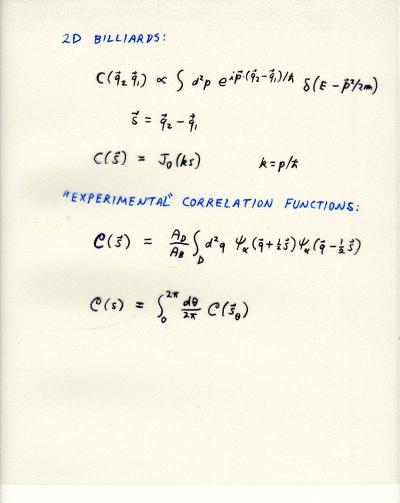 2D BILLIARDS:
C(q⃗₂ q⃗₁) ∝ ∫ d²p e^{ip⃗·(q⃗₂−q⃗₁)/ħ} δ(E − p⃗²/2m)
s⃗ = q⃗₂ − q⃗₁
C(s⃗) = J₀(ks) k = p/ħ
"EXPERIMENTAL" CORRELATION FUNCTIONS:
C(s⃗) = A_D/A_B ∫_D d²q ψ_α(q⃗+½s⃗) ψ_α(q⃗−½s⃗)
C(s) = ∫₀^{2π} dθ/2π C(s⃗_θ)